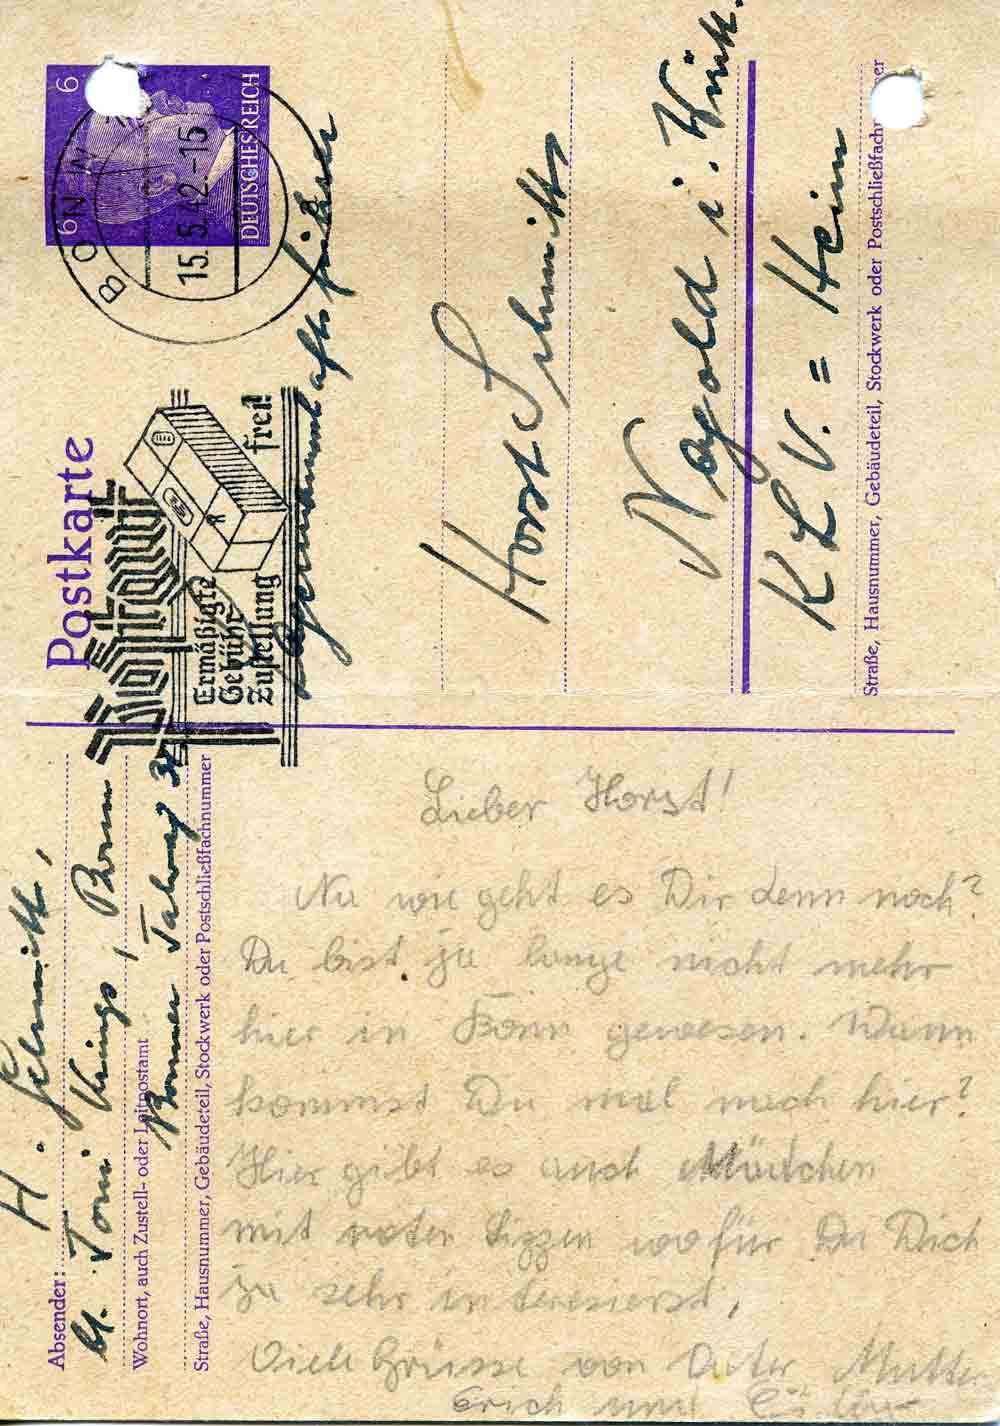 Postkarte
6 6
DEUTSCHES REICH
BONN
15.5.42.-15
Ermäßigte
Gebühr
Zustellung frei!
Absender:
H. Schmitt,
bl. Toni Krings, Bonn
Wohnort, auch Zustell- oder Leitpostamt
Bonner Talweg
Straße, Hausnummer, Gebäudeteil, Stockwerk oder Postschließfachnummer
Horst Schmitt
Nagold i. Württ.
KLV. = Heim
Straße, Hausnummer, Gebäudeteil, Stockwerk oder Postschließfachnummer
Lieber Horst!
Na wie geht es Dir denn noch?
Du bist ja lange nicht mehr
hier in Bonn gewesen. Wann
kommst Du mal nach hier?
Hier gibt es auch Mädchen
mit roten Lippen wofür Du Dich
ja sehr interesierst.
Viele Grüsse von Vater Mutter
Erich und